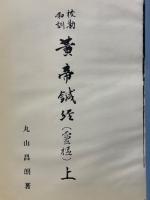 校勘
和訓
黄帝鍼経(霊枢)上
丸山昌朗著